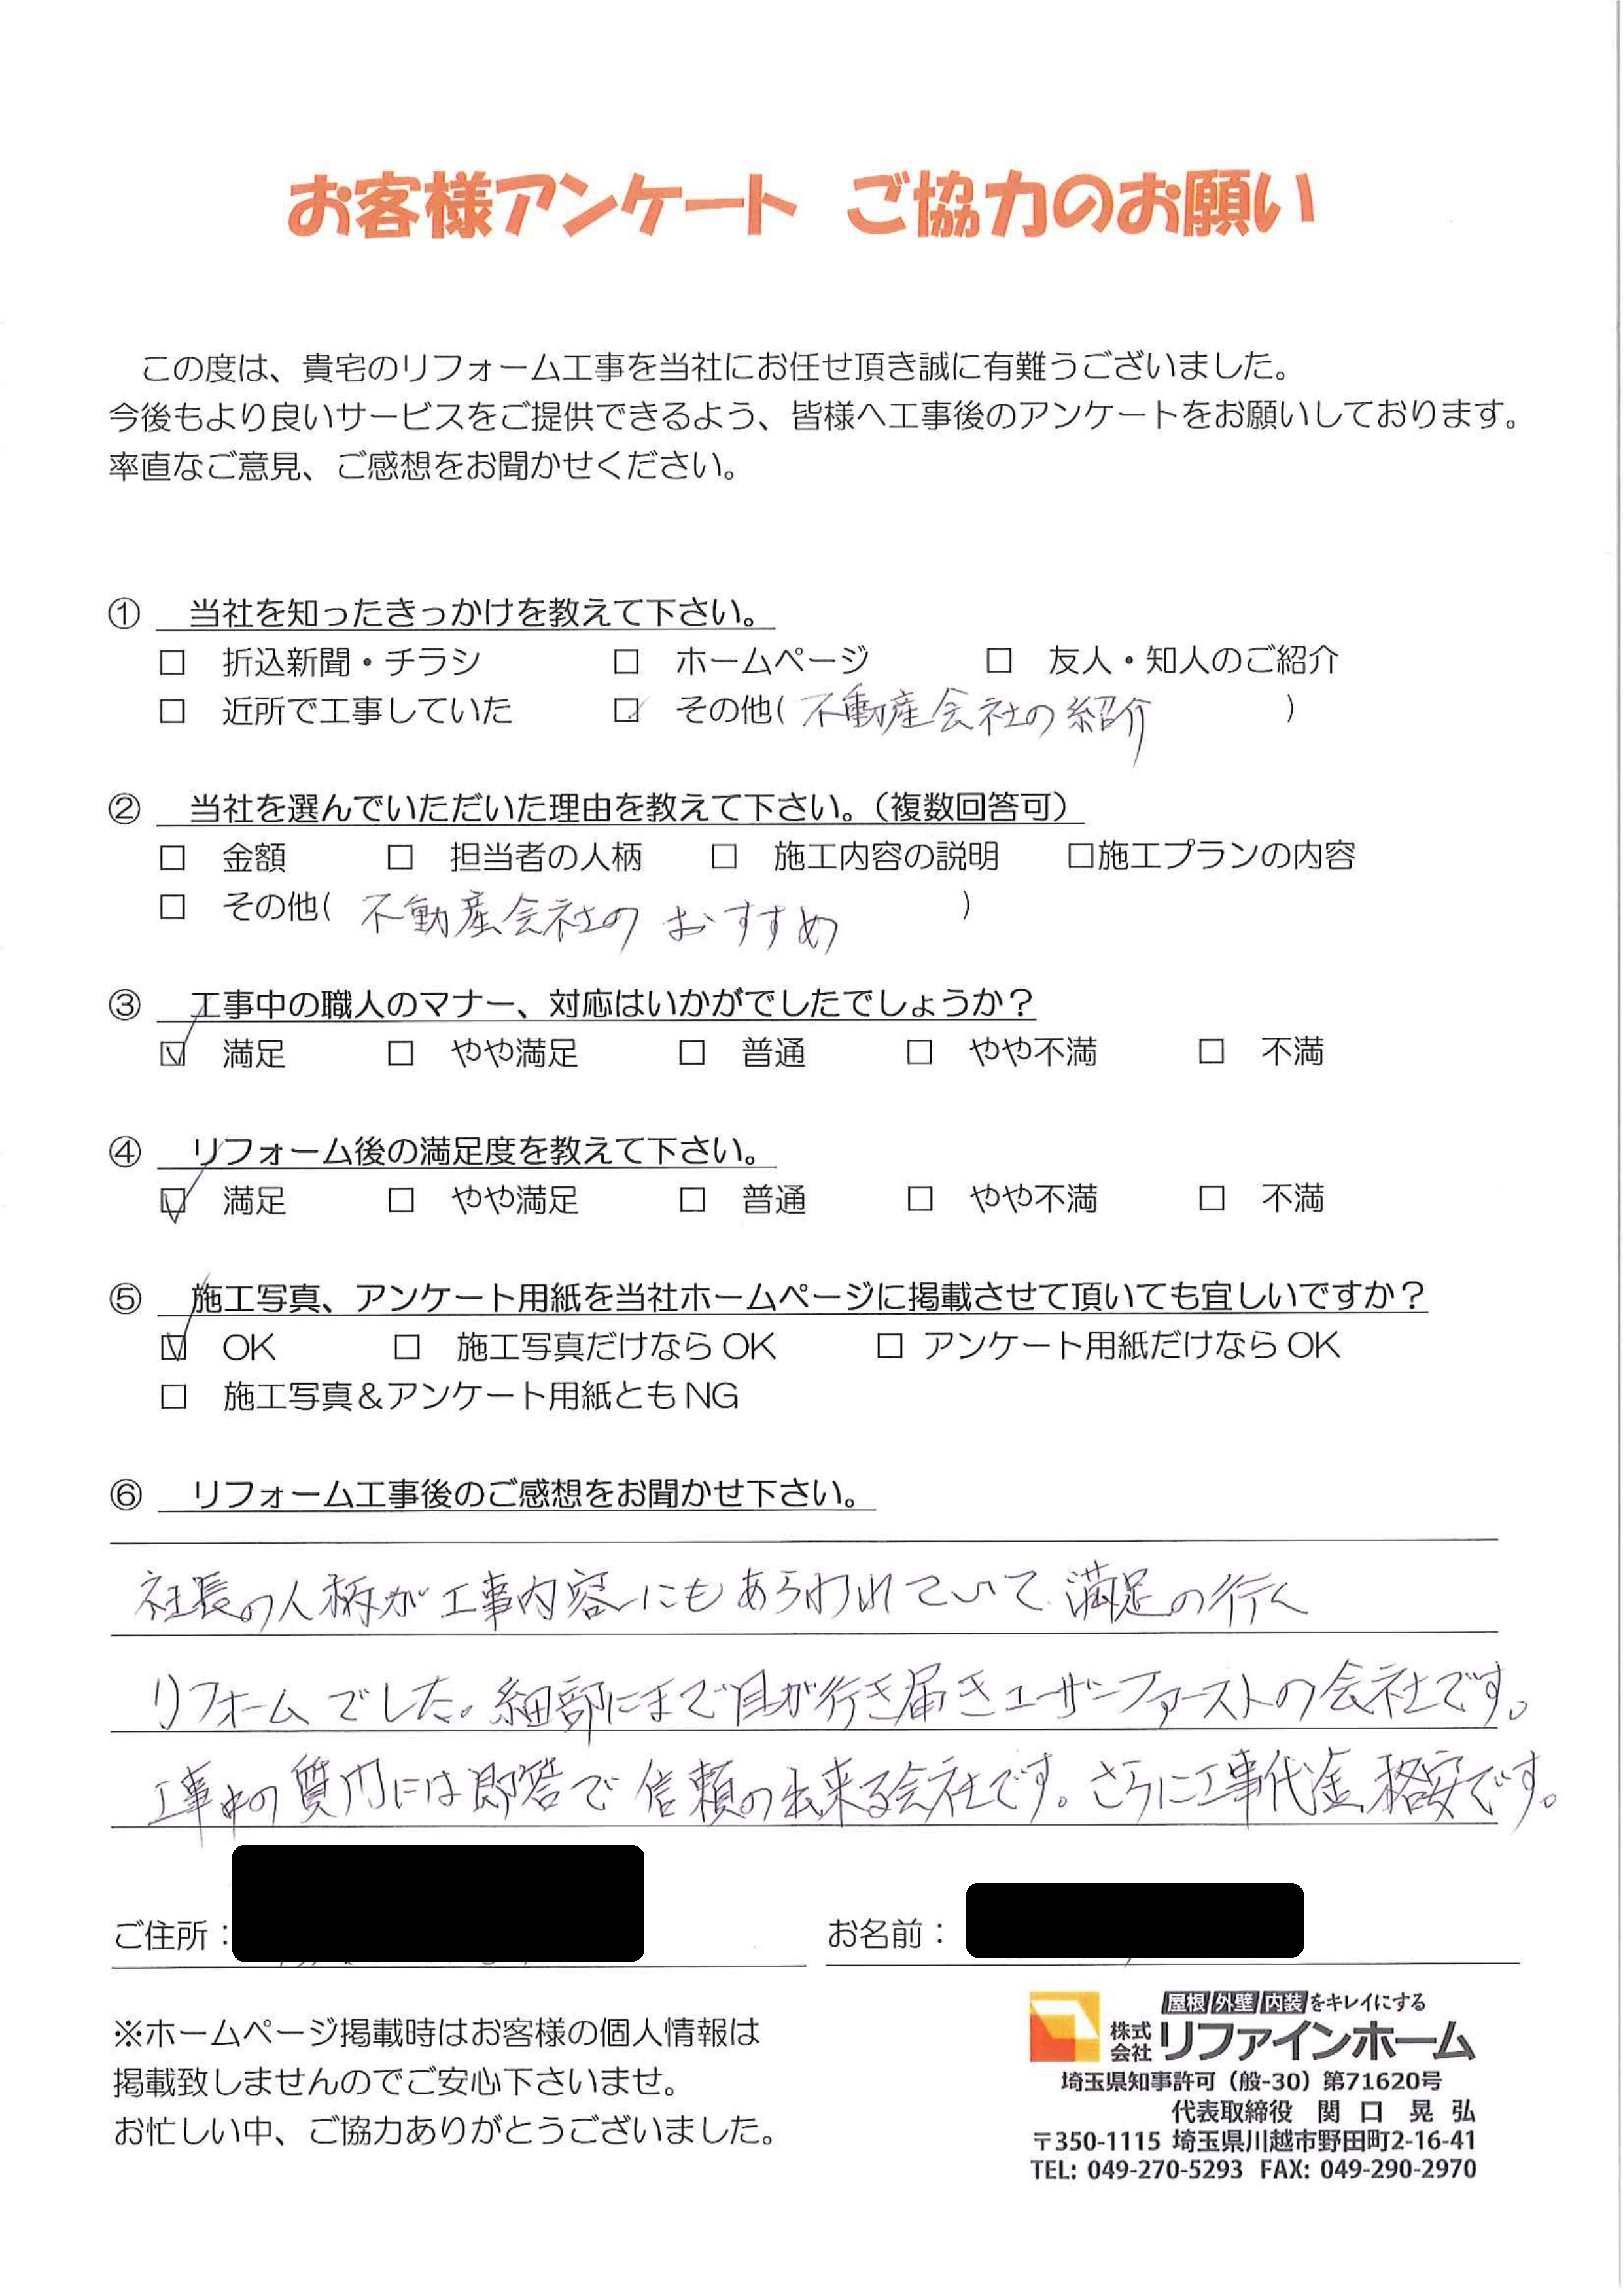 お客様アンケート ご協力のお願い
この度は、貴宅のリフォーム工事を当社にお任せ頂き誠に有難うございました。
今後もより良いサービスをご提供できるよう、皆様へ工事後のアンケートをお願いしております。
率直なご意見、ご感想をお聞かせください。
① 当社を知ったきっかけを教えて下さい。
□ 折込新聞・チラシ □ ホームページ □ 友人・知人のご紹介
□ 近所で工事していた ☑ その他( 不動産会社の紹介 )
② 当社を選んでいただいた理由を教えて下さい。（複数回答可）
□ 金額 □ 担当者の人柄 □ 施工内容の説明 □施工プランの内容
□ その他( 不動産会社の おすすめ )
③ 工事中の職人のマナー、対応はいかがでしたでしょうか？
☑ 満足 □ やや満足 □ 普通 □ やや不満 □ 不満
④ リフォーム後の満足度を教えて下さい。
☑ 満足 □ やや満足 □ 普通 □ やや不満 □ 不満
⑤ 施工写真、アンケート用紙を当社ホームページに掲載させて頂いても宜しいですか？
☑ OK □ 施工写真だけなら OK □ アンケート用紙だけなら OK
□ 施工写真＆アンケート用紙とも NG
⑥ リフォーム工事後のご感想をお聞かせ下さい。
社長の人柄が工事内容にもあらわれていて満足の行く
リフォームでした。細部にまで目が行き届きユーザーファーストの会社です。
工事中の質問には即答で信頼の出来る会社です。さらに工事代金格安です。
ご住所： お名前：
※ホームページ掲載時はお客様の個人情報は
掲載致しませんのでご安心下さいませ。
お忙しい中、ご協力ありがとうございました。
屋根 外壁 内装 をキレイにする
株式会社 リファインホーム
埼玉県知事許可（般-30）第71620号
代表取締役 関 口 晃 弘
〒350-1115 埼玉県川越市野田町2-16-41
TEL: 049-270-5293 FAX: 049-290-2970